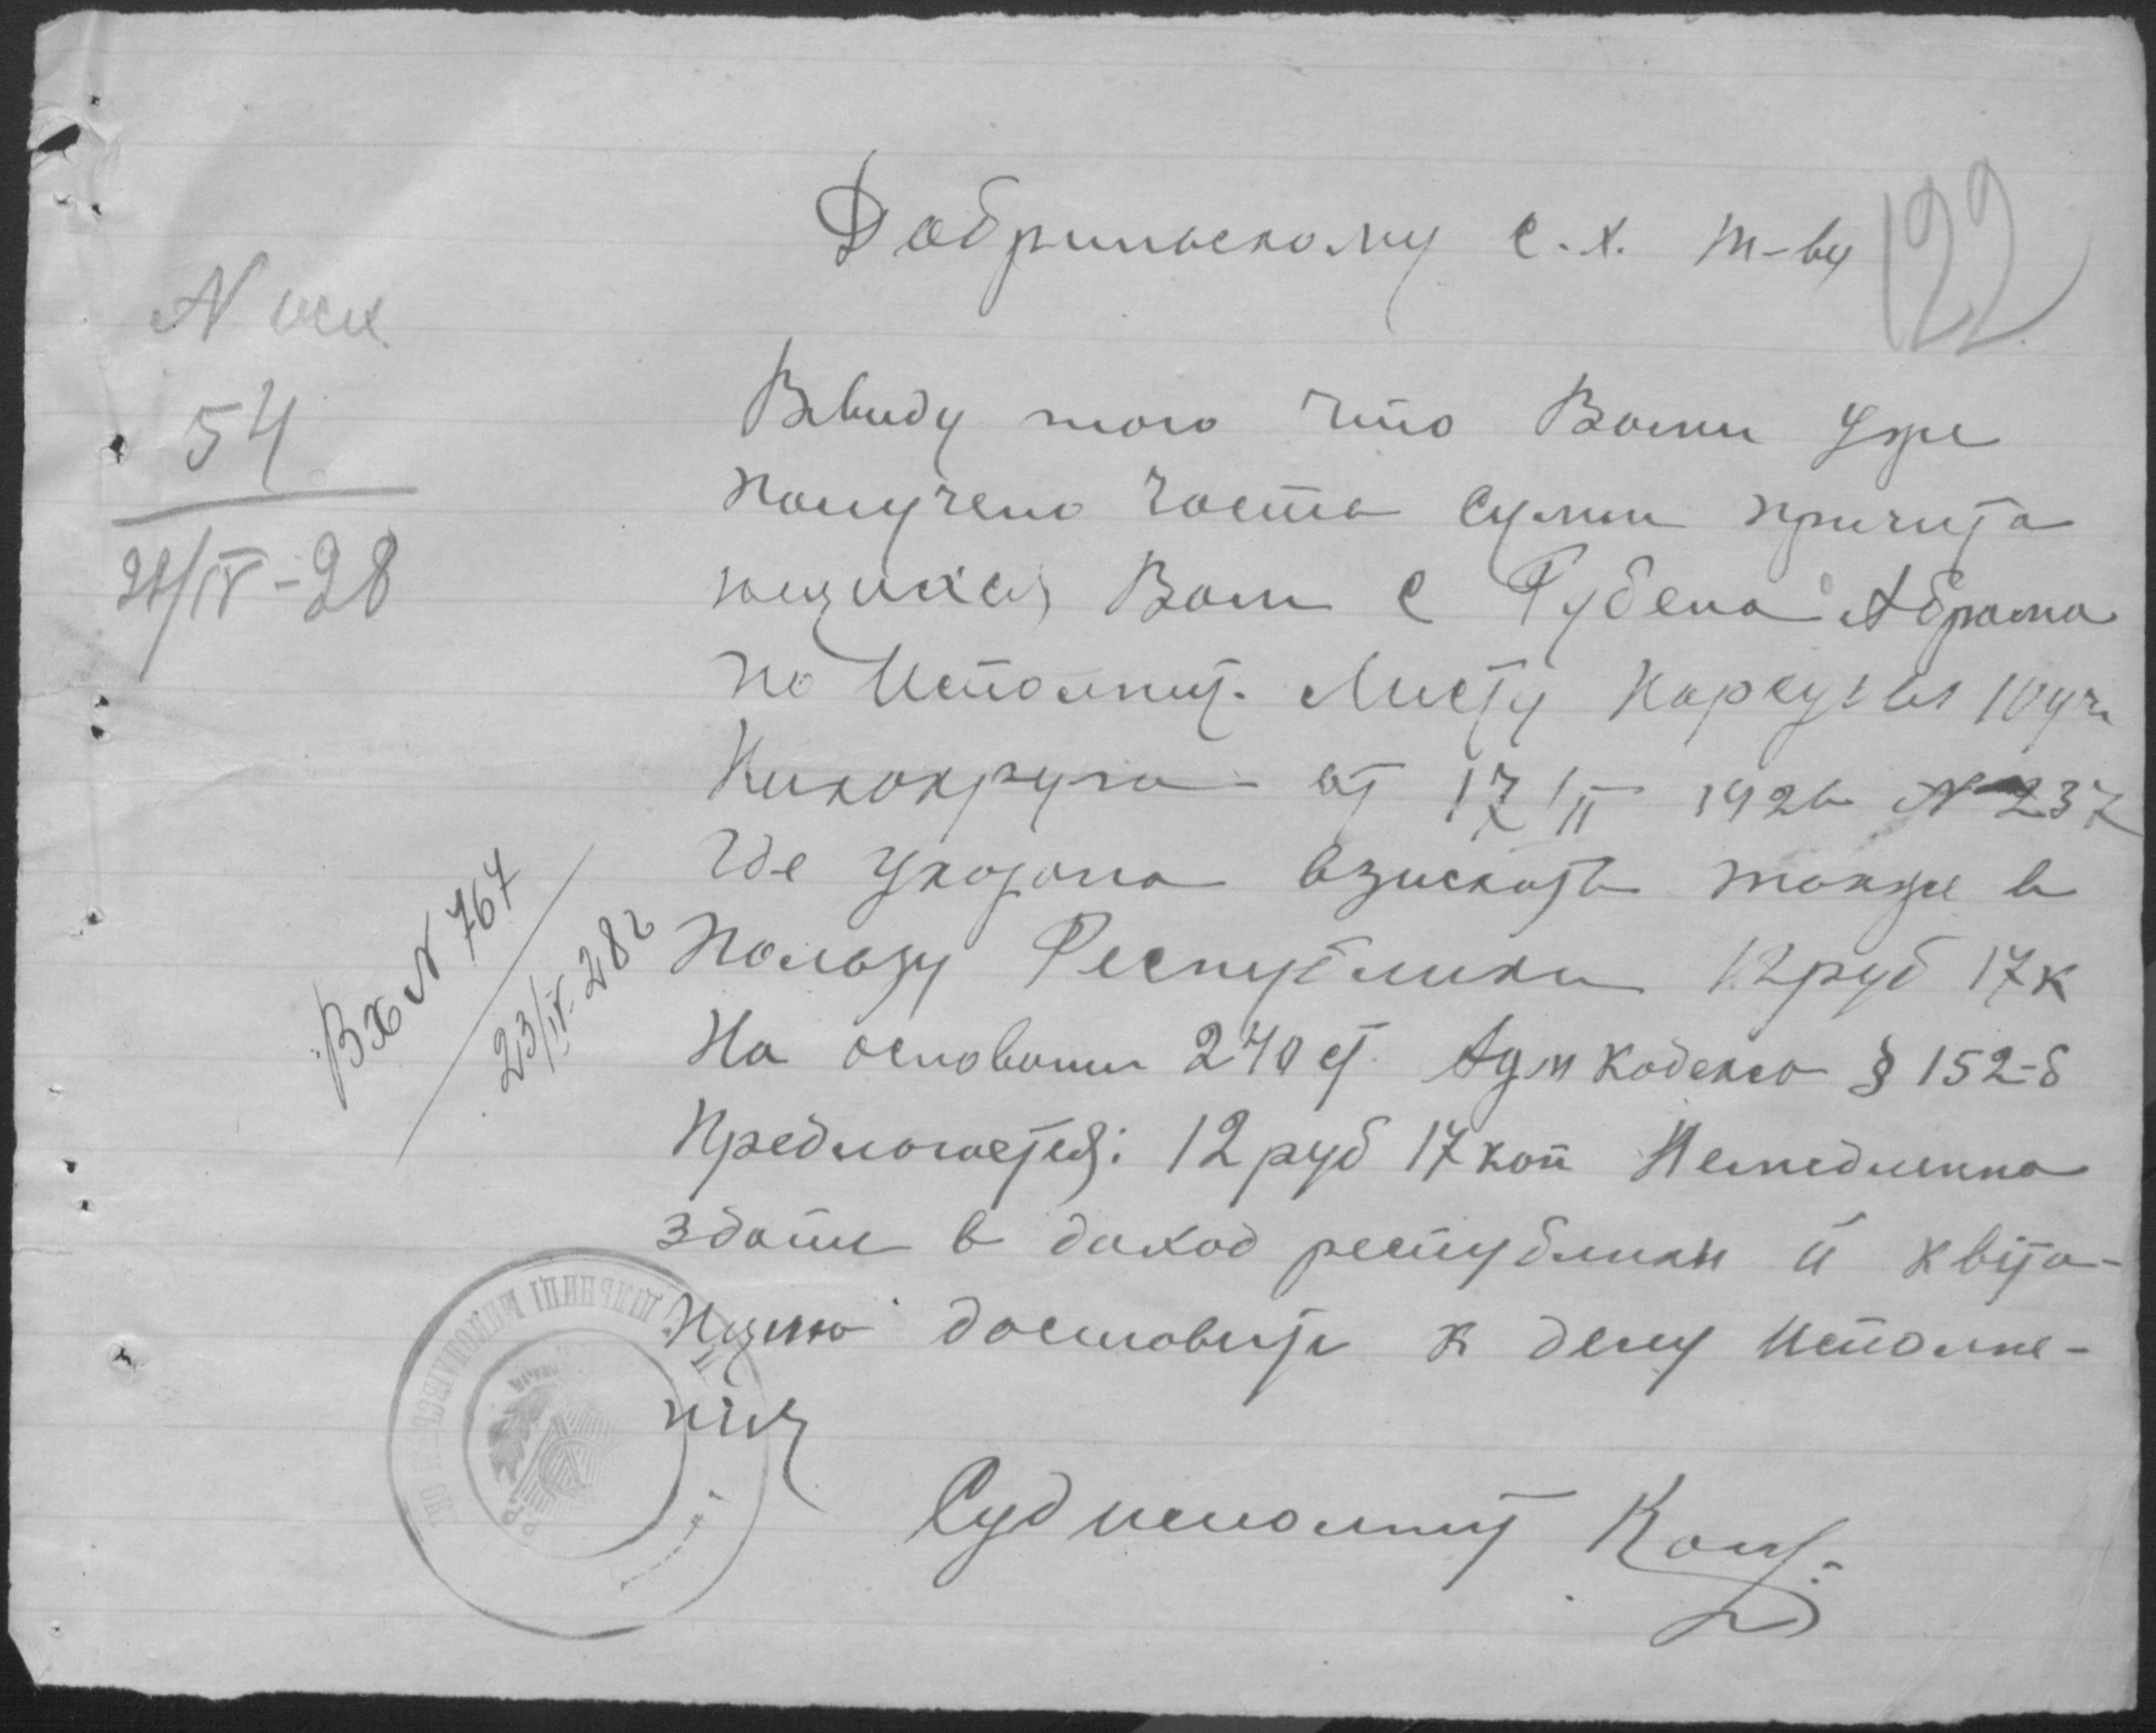 Добрильскому с.-х. т-ву
122
N исх
54
21/IV-28
Ввиду того что Вами уже
получено часть сумм причита
ющихся Вам с Рубена Абрама
по Исполнит. Листу Нарсуда 10 уч.
от 17/II 192 N 237
где указана взискать также в
пользу Республики 12 руб 17 к
На основании 270 ст. Адм Кодекса § 152-б
Предлогается: 12 руб 17 коп Немедленно
здать в доход республики й квіта-
нцию доставить к делу исполне-
ния
Вх N 767
23/IV-28 г
Суд исполнит